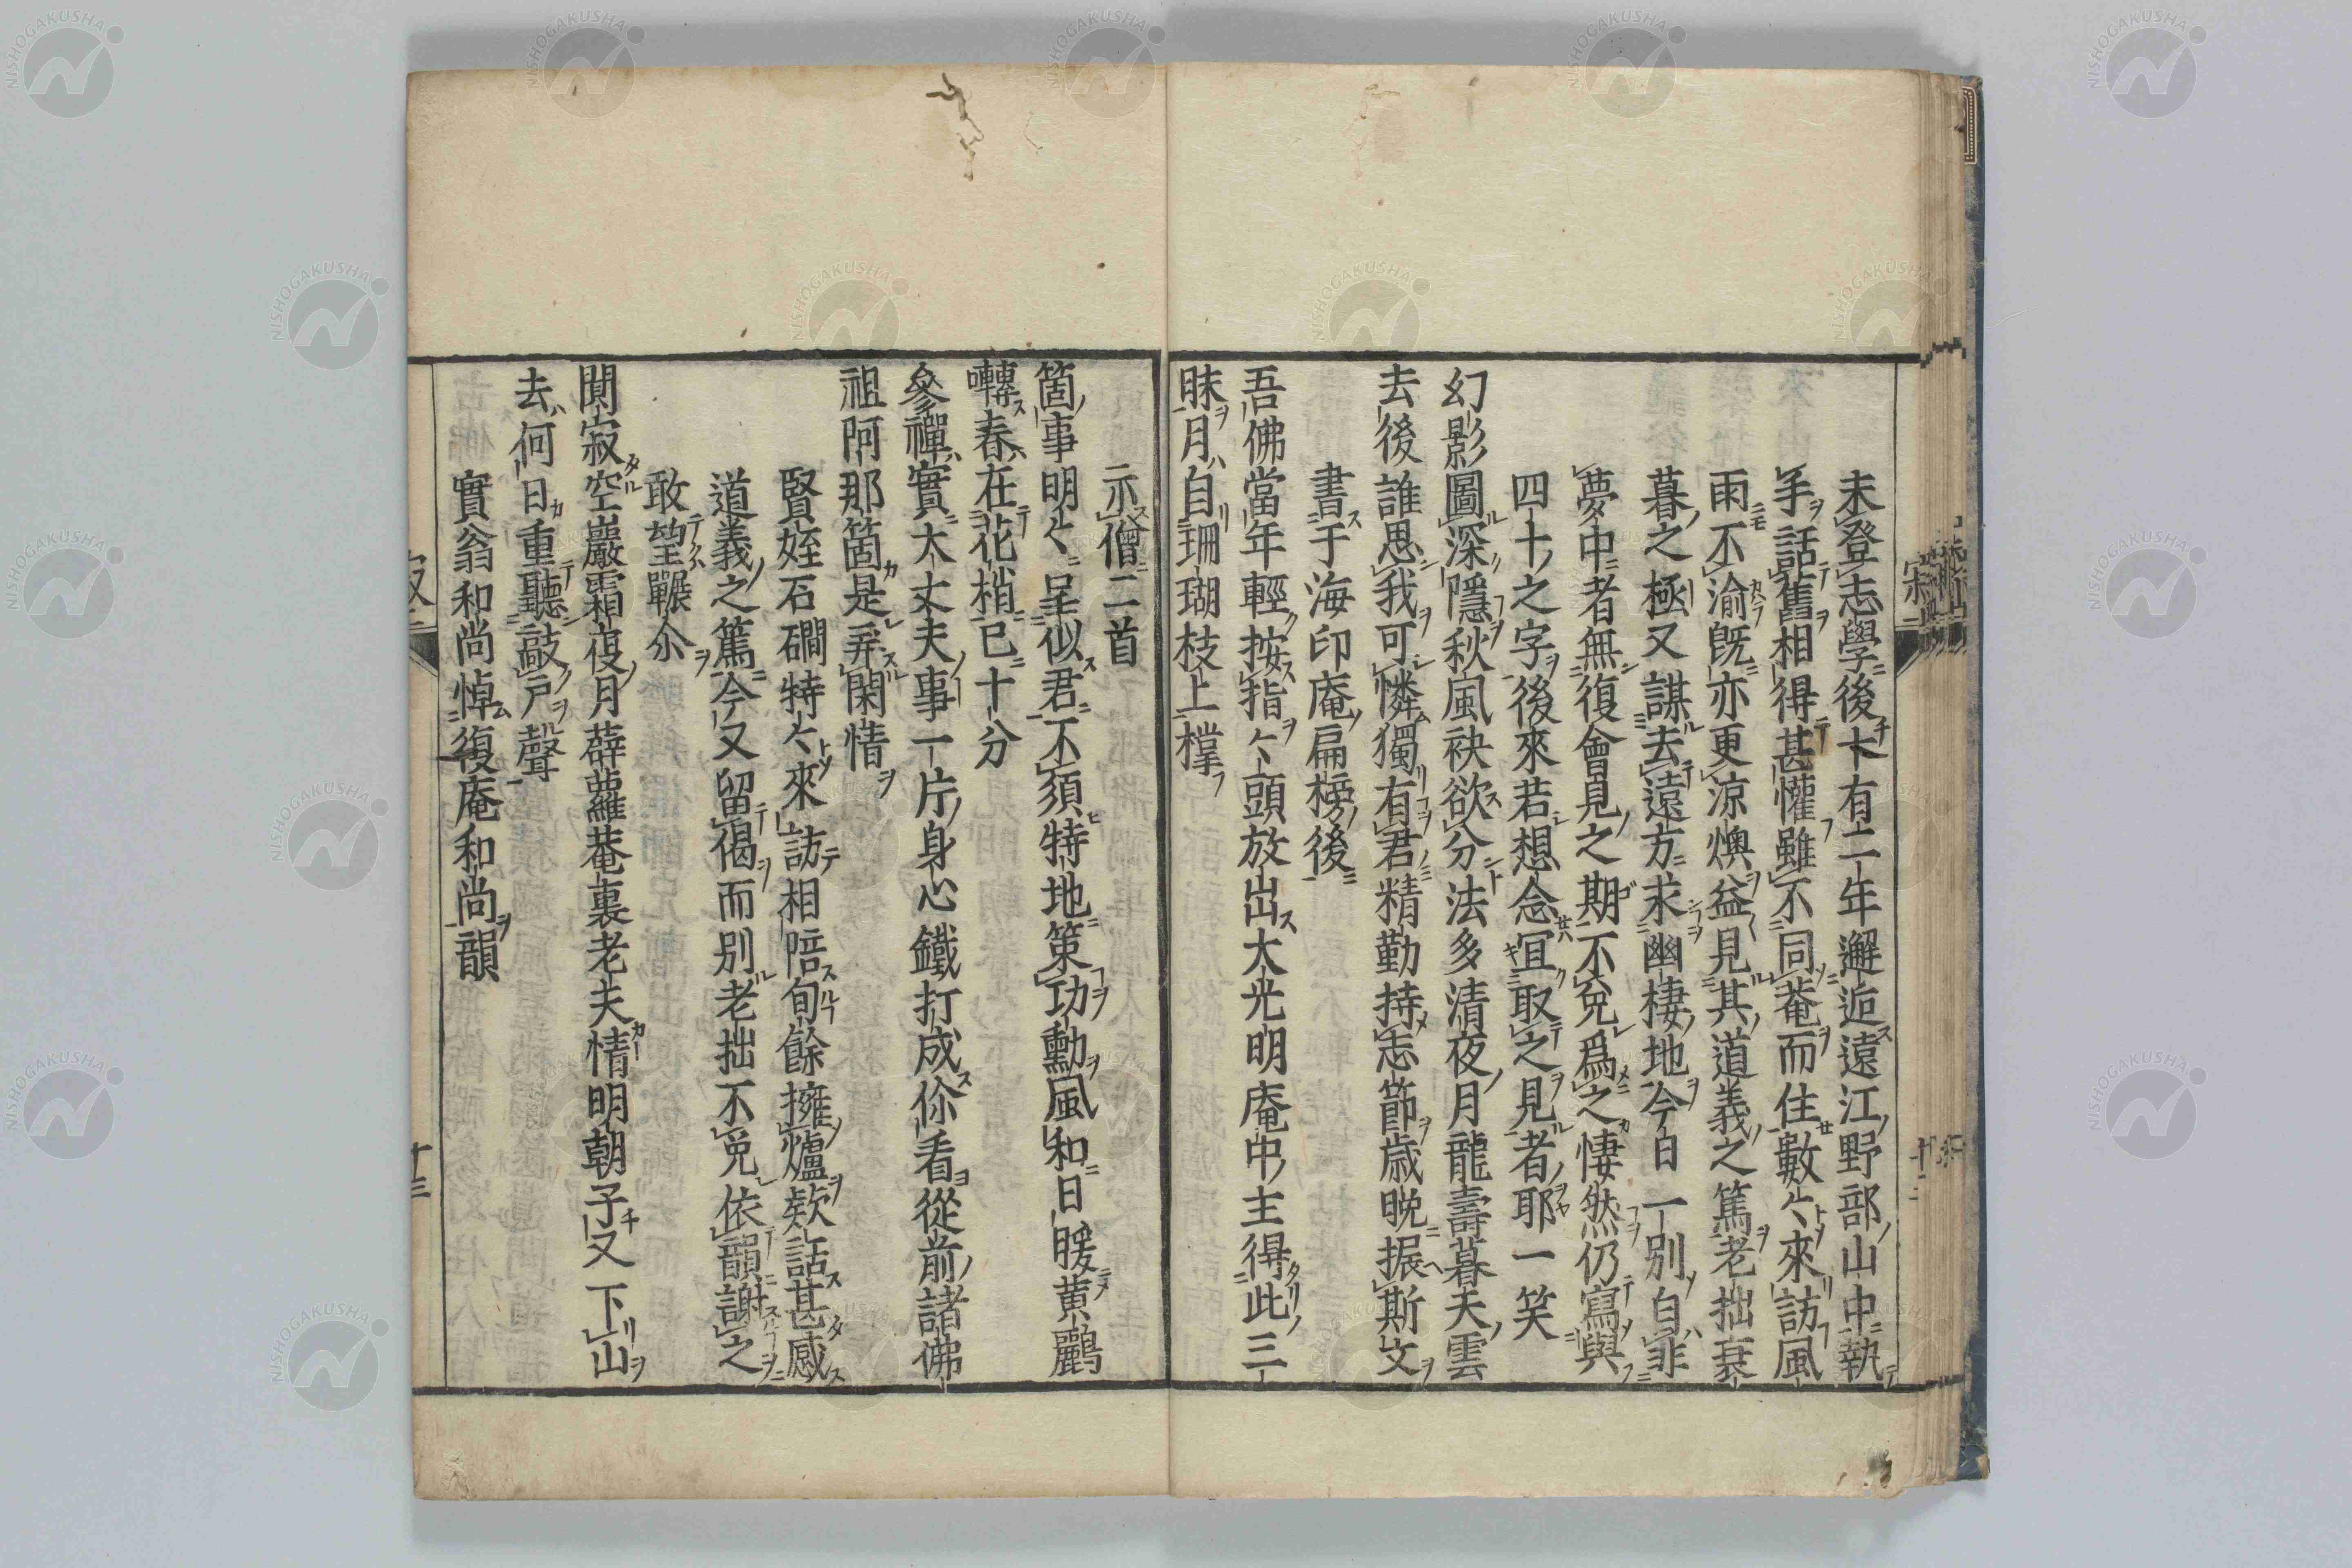 未登志學後卞有二年邂逅遠江野部山中執
手話舊相得甚懽雖不同菴而住數々來訪風
雨不渝既亦更涼燠益見其道義之篤老拙衰
暮之極又謀去遠方求幽棲地今日一別自非
夢中者無復會見之期不免爲之悽然仍寫與
四十之字後來若想念冝取之見者耶一笑
幻影圖深隱秋風袂欲分法多清夜月龍壽暮天雲
去後誰思我可憐獨有君精勤持志節歲晚振斯文
書于海印庵扁榜後
吾佛當年輕按指々頭放出大光明庵中主得此三
昧月自珊瑚枝上撑
示僧二首
箇事明々呈似君不須特地策功勳風和日暖黄鸝
囀春在花梢已十分
參禪實大丈夫事一片身心鐵打成你看從前諸佛
祖阿那箇是弄閑情
賢姪石磵特々來訪相陪旬餘擁爐欵話甚感
道義之篤今又留偈而別老拙不免依韻謝之
敢望囅尒
聞寂空巖霜夜月薜蘿菴裏老夫情明朝子又下山
去何日重聽敲戸聲
實翁和尚悼復庵和尚韻